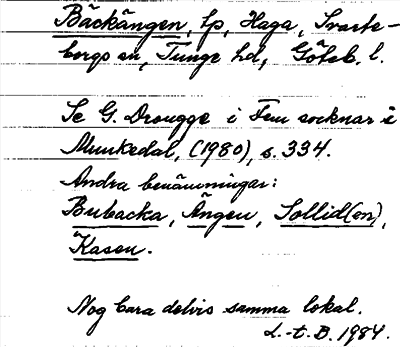 Bäckängen, lp, Haga, Svarte-
borgs sn, Tunge hd, Göteb. l.
Se G. Drougge i Fem socknar i
Munkedal, (1980), s. 334.
Andra benämningar:
Bubacka, Ängen, Sollid(en),
Kasen.
Nog bara delvis samma lokal.
L.-t. B. 1984.